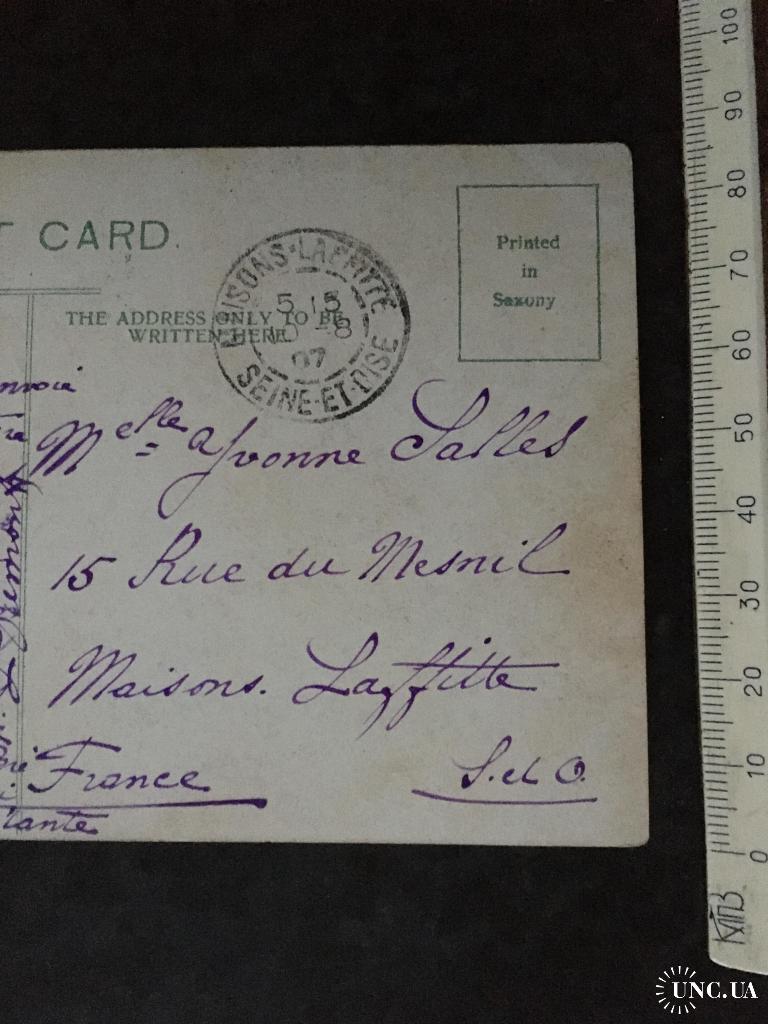 T CARD.
Printed
in
Saxony
THE ADDRESS ONLY TO BE
WRITTEN HERE.
MAISONS-LAFFITTE
5 15
10 -8
07
SEINE-ET-OISE
Melle Yvonne Salles
15 Rue du Mesnil
Maisons. Laffitte
France
S. et O.
100
90
80
70
60
50
40
30
20
10
0
UNC.UA